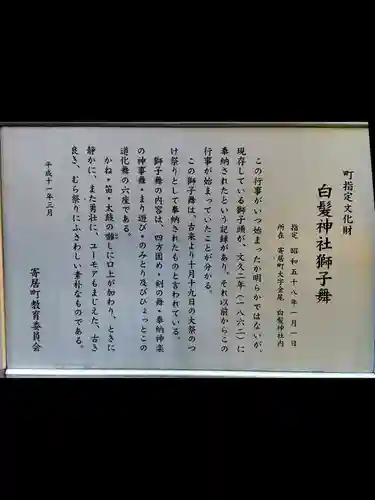 町指定文化財
白髪神社獅子舞
指定 昭和五十八年一月一日
所在 寄居町大字金尾 白髪神社内
この行事がいつ始まったか明らかではないが、
現存している獅子頭が、文久二年(一八六二)に
奉納されたという記録があり、それ以前からこの
行事が始まっていたことが分かる。
この獅子舞は、古来より十月十九日の大祭のつ
け祭りとして奉納されたものと言われている。
獅子舞の内容は、四方固め・剣の舞・奉納神楽
の神事舞・まり遊び・のみとり及びひょっとこの
道化舞の六座である。
かね・笛・太鼓の囃しに口上が加わり、ときに
静かに、また勇壮に、ユーモアもまじえた、古き
良き、むら祭りにふさわしい素朴なものである。
平成十一年三月
寄居町教育委員会